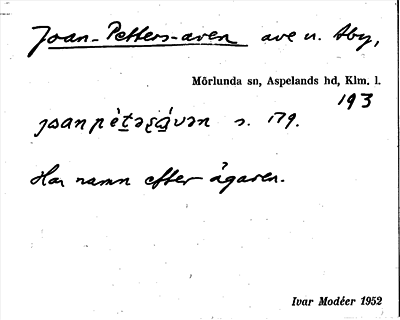 Joan-Petters-aven ave n. Åby,
Mörlunda sn, Aspelands hd, Klm. l.
193
s. 179.
Har namn efter ägaren.
Ivar Modéer 1952